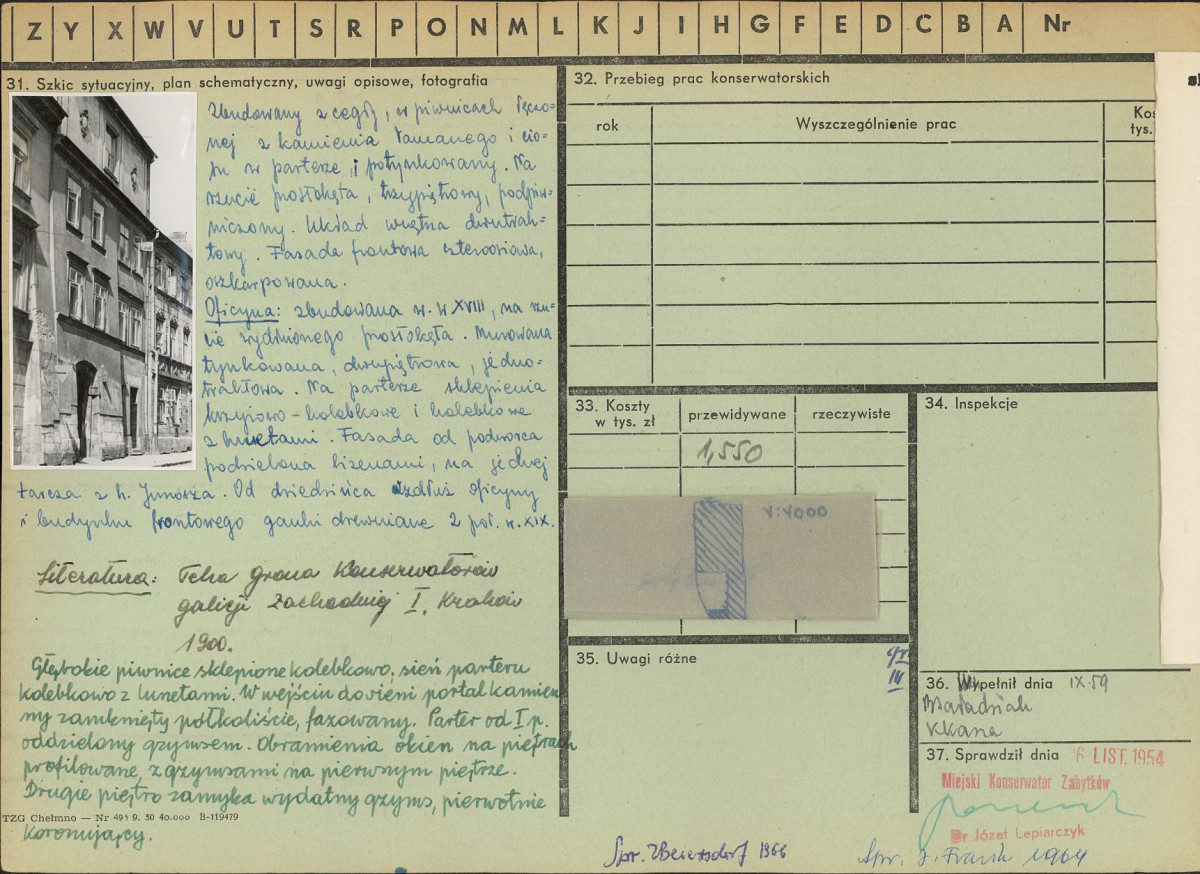 Z Y X W V U T S R P O N M L K J I H G F E D C B A Nr
31. Szkic sytuacyjny, plan schematyczny, uwagi opisowe, fotografia
Zbudowany z cegły, w piwnicach łączo-
nej z kamienia łamanego i cio-
su w parterze i potynkowany. Na
rzucie prostokąta, trzypiętrowy, podpiw-
niczony. Układ wnętrza dwutrak-
towy. Fasada frontowa czteroosiowa,
oszkarpowana.
Oficyna: zbudowana w. w XVIII, na rzu-
cie wydłużonego prostokąta. Murowana
tynkowana, dwupiętrowa, jedno-
traktowa. Na parterze sklepienia
krzyżowo-kolebkowe i kolebkowe
z lunetami. Fasada od podwórca
podzielona lizenami, na jednej
tarcza z h. Junosza. Od dziedzińca wzdłuż oficyny
i budynku frontowego ganki drewniane 2 poł. w. XIX.
Literatura: Teka grona Konserwatorów
galicji Zachodniej I, Kraków
1900.
Głębokie piwnice sklepione kolebkowo, sień parteru
kolebkowo z lunetami. W wejściu do sieni portal kamien
ny zamknięty półkoliście, fazowany. Parter od I p.
oddzielony gzymsem. Obramienia okien na piętrach
profilowane, z gzymsami na pierwszym piętrze.
Drugie piętro zamyka wydatny gzyms, pierwotnie
koronujący.
TZG Chełmno — Nr 495 9. 50 40.000 B-119479
32. Przebieg prac konserwatorskich
rok
Wyszczególnienie prac
Kos
tys.
33. Koszty
w tys. zł
przewidywane
rzeczywiste
1,550
34. Inspekcje
1:1000
35. Uwagi różne
36. Wypełnił dnia IX.59
37. Sprawdził dnia 6 LIST. 1954
Miejski Konserwator Zabytków
Dr Józef Lepiarczyk
Spr. 1966
Spr. J. Frazik 1964